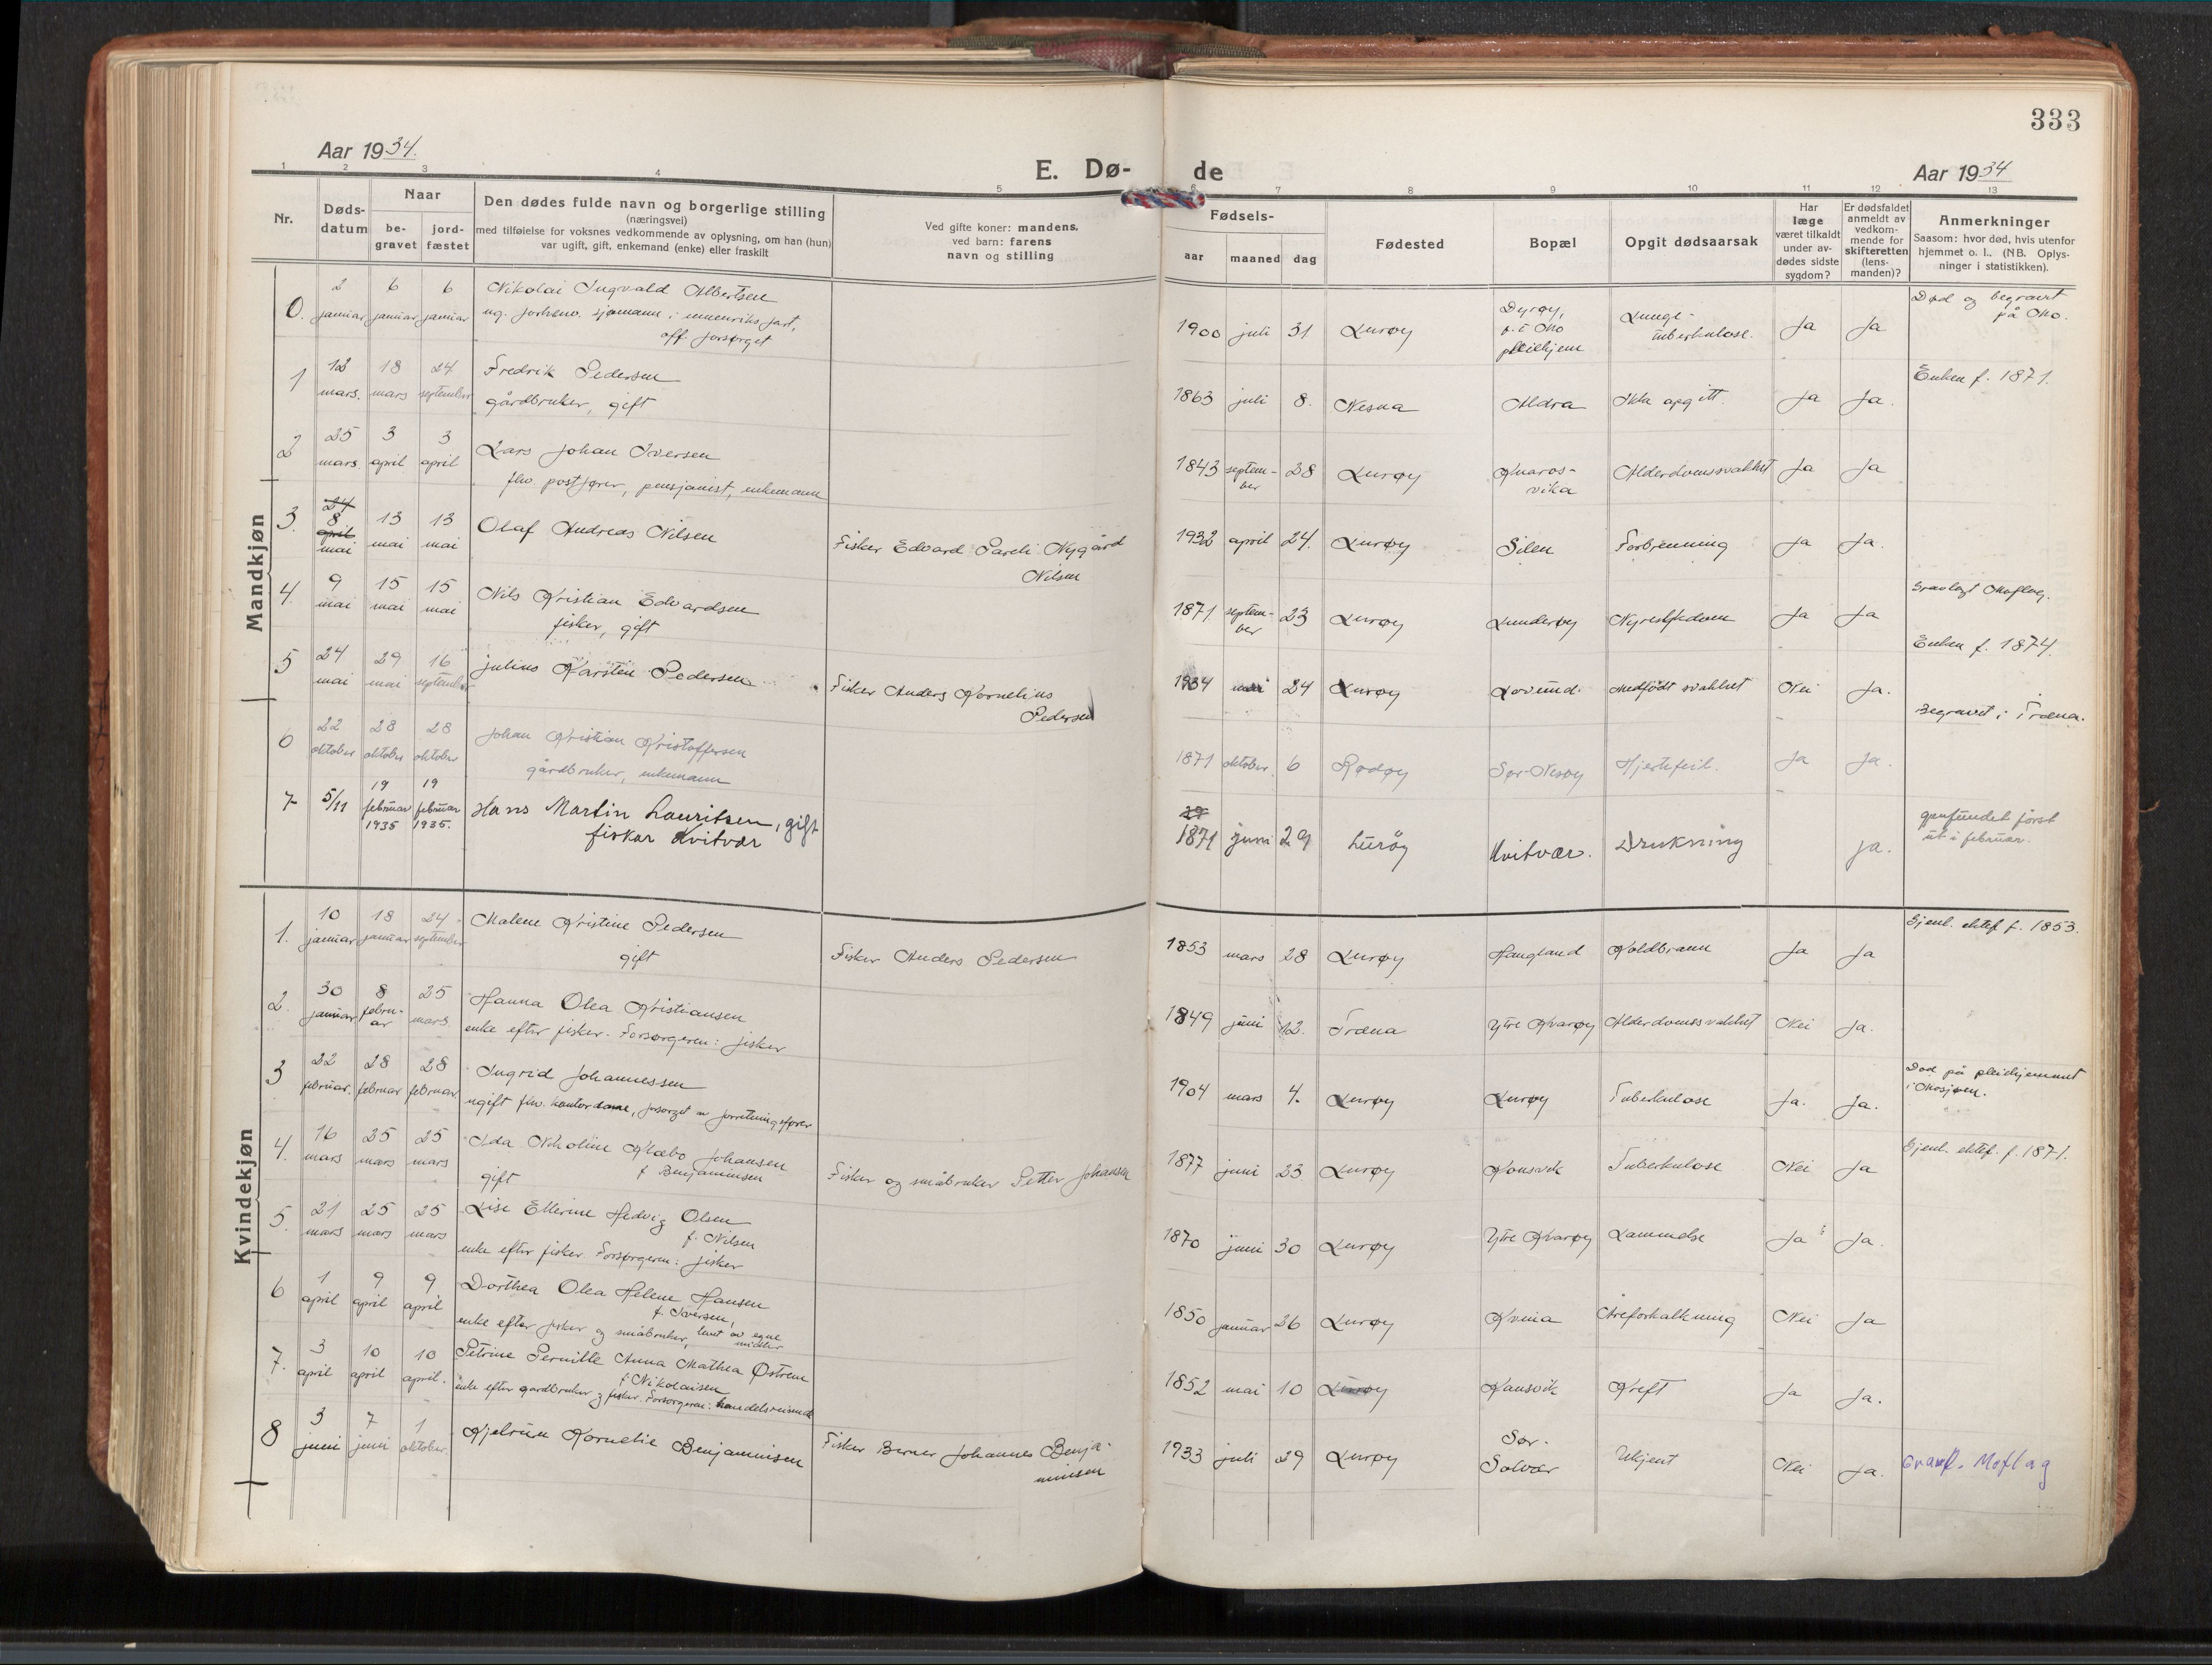 333
Aar 1934.
E. Dø-
de
Aar 1934
1 2 3 4 5 6 7 8 9 10 11 12 13
Nr.
Døds-
datum
Naar
be-
gravet
jord-
fæstet
Den dødes fulde navn og borgerlige stilling
(næringsvei)
med tilføielse for voksnes vedkommende av oplysning, om han (hun)
var ugift, gift, enkemand (enke) eller fraskilt
Ved gifte koner: mandens,
ved barn: farens
navn og stilling
Fødsels-
aar maaned dag
Fødested
Bopæl
Opgit dødsaarsak
Har
læge
været tilkaldt
under av-
dødes sidste
sygdom?
Er dødsfaldet
anmeldt av
vedkom-
mende for
skifteretten
(lens-
manden)?
Anmerkninger
Saasom: hvor død, hvis utenfor
hjemmet o. l.. (NB. Oplys-
ninger i statistikken).
Mandkjøn
0. 2 januar 6 januar 6 januar
Nikolai Ingvald Albertsen
ug. forhenv. sjømann i innenriks fart,
off. forsørget
1900 juli 31 Lurøy
Dyrøy,
p.t. Mo
pleiehjem
Lunge-
tuberkulose.
Ja Ja
Død og begravet
på Mo.
1 12 mars. 18 mars 24 september
Fredrik Pedersen
gårdbruker, gift
1863 juli 8. Nesna Aldra Ikke opgitt. Ja Ja.
Enken f. 1871.
2 25 mars. 3 april 3 april
Lars Johan Iversen
fhv. postfører, pensjonist, enkemann
1843 septem-
ber 28 Lurøy
Kvaros-
vika
Alderdomssvakhet Ja Ja
3. 24 april
8 mai 13 mai 13 mai
Olaf Andreas Nilsen
Fisker Edvard Pareli Nygård
Nilsen
1932 april 24. Lurøy Silen Forbrenning Ja Ja.
4. 9 mai 15 mai 15 mai
Nils Kristian Edvardsen
fisker, gift
1871 septem-
ber 23 Lurøy Lunderøy Nyresykdom Ja Ja
Gravlagt Moflag.
Enken f. 1874.
5 24 mai 29 mai 16 september
Julius Karsten Pedersen
Fisker Anders Kornelius
Pedersen
1934 mai 24 Lurøy Lovund. Medfödt svakhet Nei Ja.
Begravet i Træna.
6 22 oktober 28 oktober 28 oktober
Johan Kristian Kristoffersen
gårdbruker, enkemann
1871 oktober 6 Rødøy Sør-Nesøy Hjertefeil. Ja Ja.
7 5/11 19 februar 1935 19 februar 1935.
Hans Martin Lauritsen, gift
fisker Kvitvær
29
1871 juni 29 Lurøy Kvitvær. Drukning ja.
gjenfundet først
ut i februar.
Kvindekjøn
1. 10 januar 18 januar 24 september
Malene Kristine Pedersen
gift
Fisker Anders Pedersen
1853 mars 28 Lurøy Haugland Koldbrann Ja Ja
Gjenl. ektef. f. 1853.
2. 30 januar 8 febru-
ar 25 mars.
Hanna Olea Kristiansen
enke efter fisker. Forsørgeren: fisker
1849 juni 12. Træna Ytre Kvarøy Alderdomssvakhet Nei Ja.
3 22 februar. 28 februar 28 februar.
Ingrid Johannessen
ugift fhv. kontordame, forsørget av forretningsfører
1904 mars 4. Lurøy Lurøy Tuberkulose Ja. Ja.
Død på pleiehjemmet
i Mosjøen.
4. 16 mars 25 mars 25 mars
Ida Nikoline Klæbo Johansen
f. Benjaminsen
gift
Fisker og småbruker Petter Johansen
1877 juni 23. Lurøy Konsvik Tuberkulose Nei Ja
Gjenl. ektef. f. 1871.
5. 21 mars 25 mars 25 mars
Lise Ellerine Hedvig Olsen
f. Nilsen
enke efter fisker. Forsørgeren: fisker
1870 juni 30 Lurøy Ytre Kvarøy Lammelse Ja Ja.
6 1 april 9 april 9 april
Dorthea Olea Helene Hansen
f. Iversen,
enke efter fisker og småbruker, levet av egne
midler
1850 januar 26 Lurøy Kvina Åreforkalkning Nei Ja
7. 3 april 10 april 10 april.
Petrine Pernille Anna Mathea Østrem
f. Nikolaisen
enke efter gardbruker og fisker. Forsørgeren: handelsreisende
1852 mai 10 Lurøy Konsvik Kreft Ja Ja.
8 3 juni 7 juni 1 oktober.
Kjelrun Kornelie Benjaminsen
Fisker Berner Johannes Benja-
minsen
1933 juli 29 Lurøy
Sør-
Solvær
Ukjent Nei Ja.
Gravf. Moflag